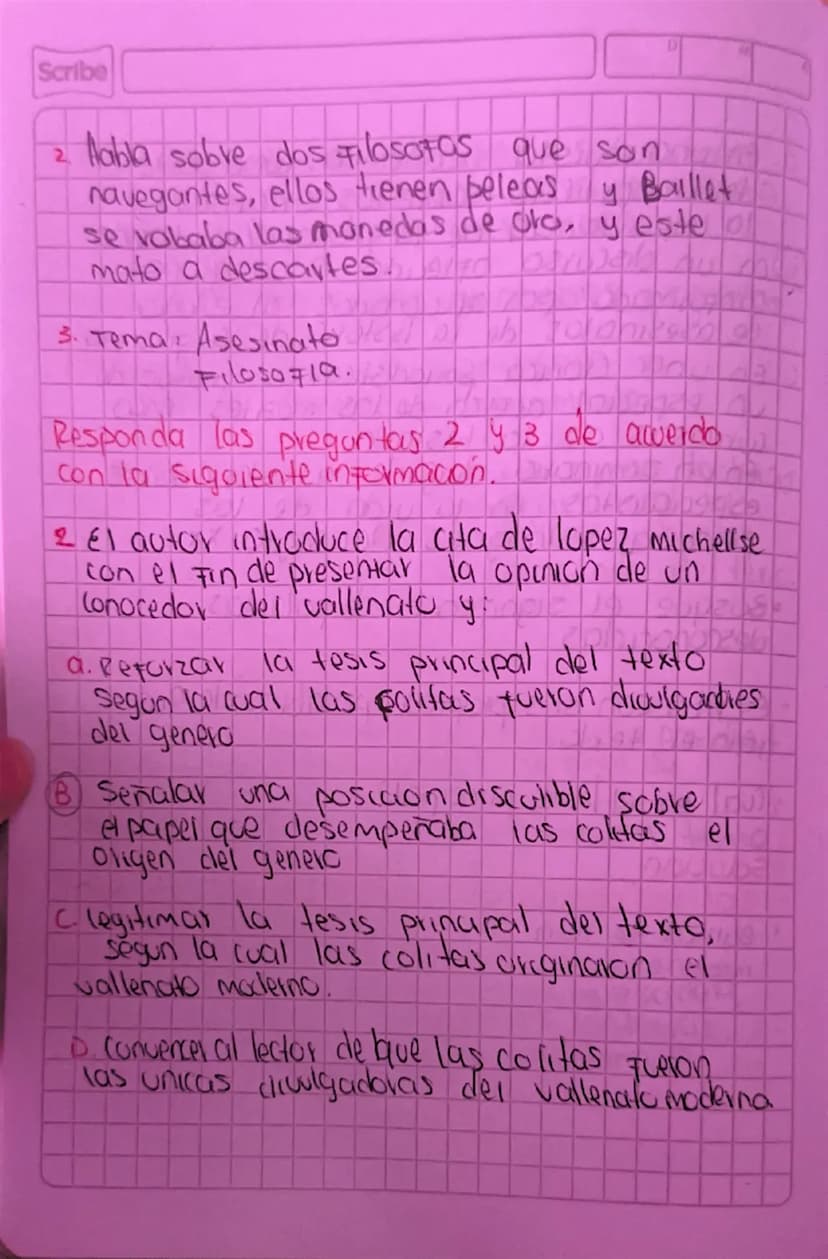 Scribe
2 Habla sobre dos Filosofos que son
navegantes, ellos tienen peleas y Baillet
se robaba las monedas de oro, y este
mato a descartes.
3. Tema: Asesinato
Filosofia.
Responda las preguntas 2 y 3 de acuerdo
con la siguiente informacon.
2 El autor introduce la cita de lopez michellse
con el Fin de presentar la opinion de un
conocedor del vallenato y:
a. Reforzar la tesis principal del texto
Segun la cual las politas fueron divulgadores
del genero
B Señalar una posicion discutible sobre
el papel que desempeñaba las colitas el
origen del genero
C. legitimar la tesis principal del texto,
segun la cual las colitas originaron el
vallenato moderno.
D. Convencer al lector de que las colitas Fueron
las unicas divulgadoras del vallenato moderna